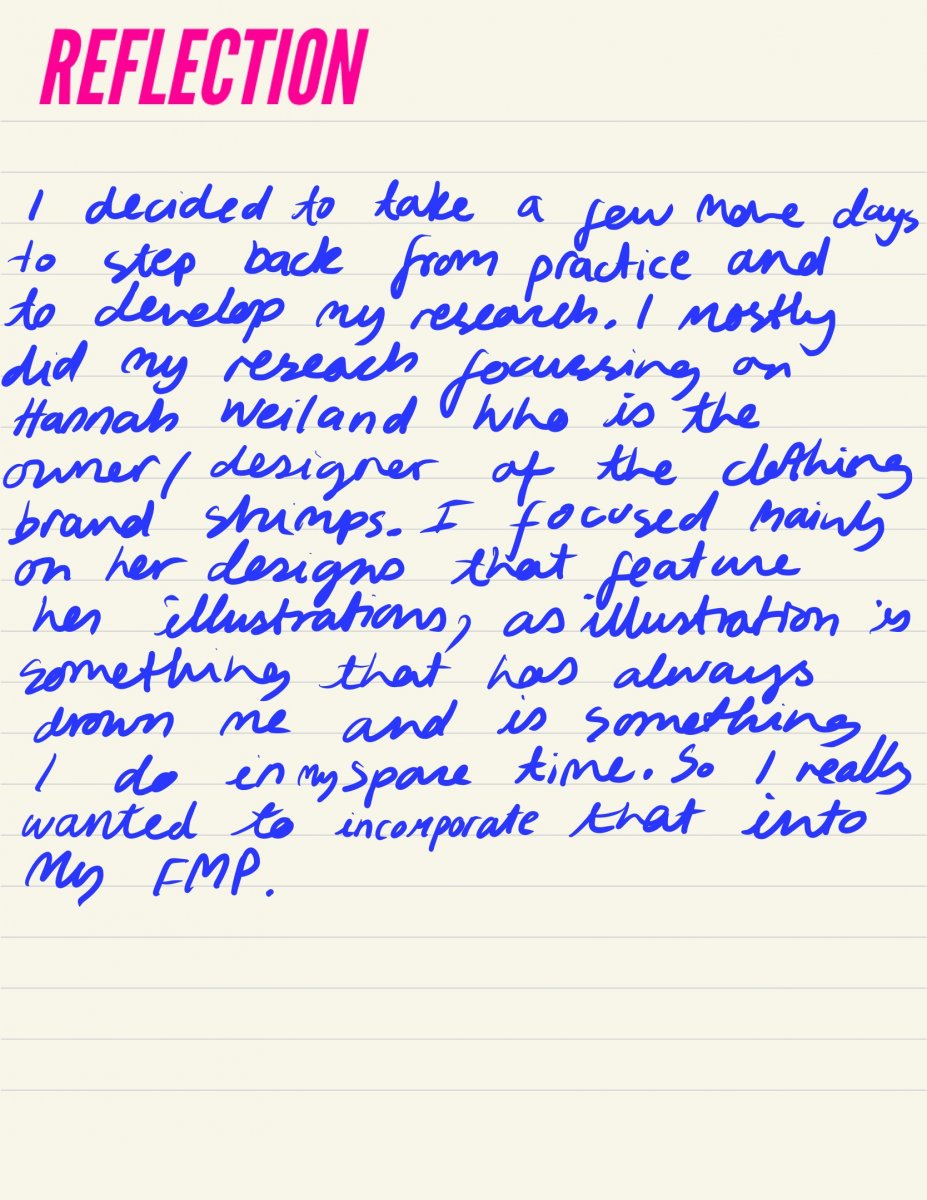 REFLECTION
I decided to take a few more days
to step back from practice and
to develop my research. I mostly
did my reseach focussing on
Hannah Weiland who is the
owner/designer of the clothing
brand shrimps. I focused mainly
on her designs that feature
her illustrations, as illustration is
something that has always
drown me and is something
I do in my spare time. So I really
wanted to incorporate that into
My FMP.